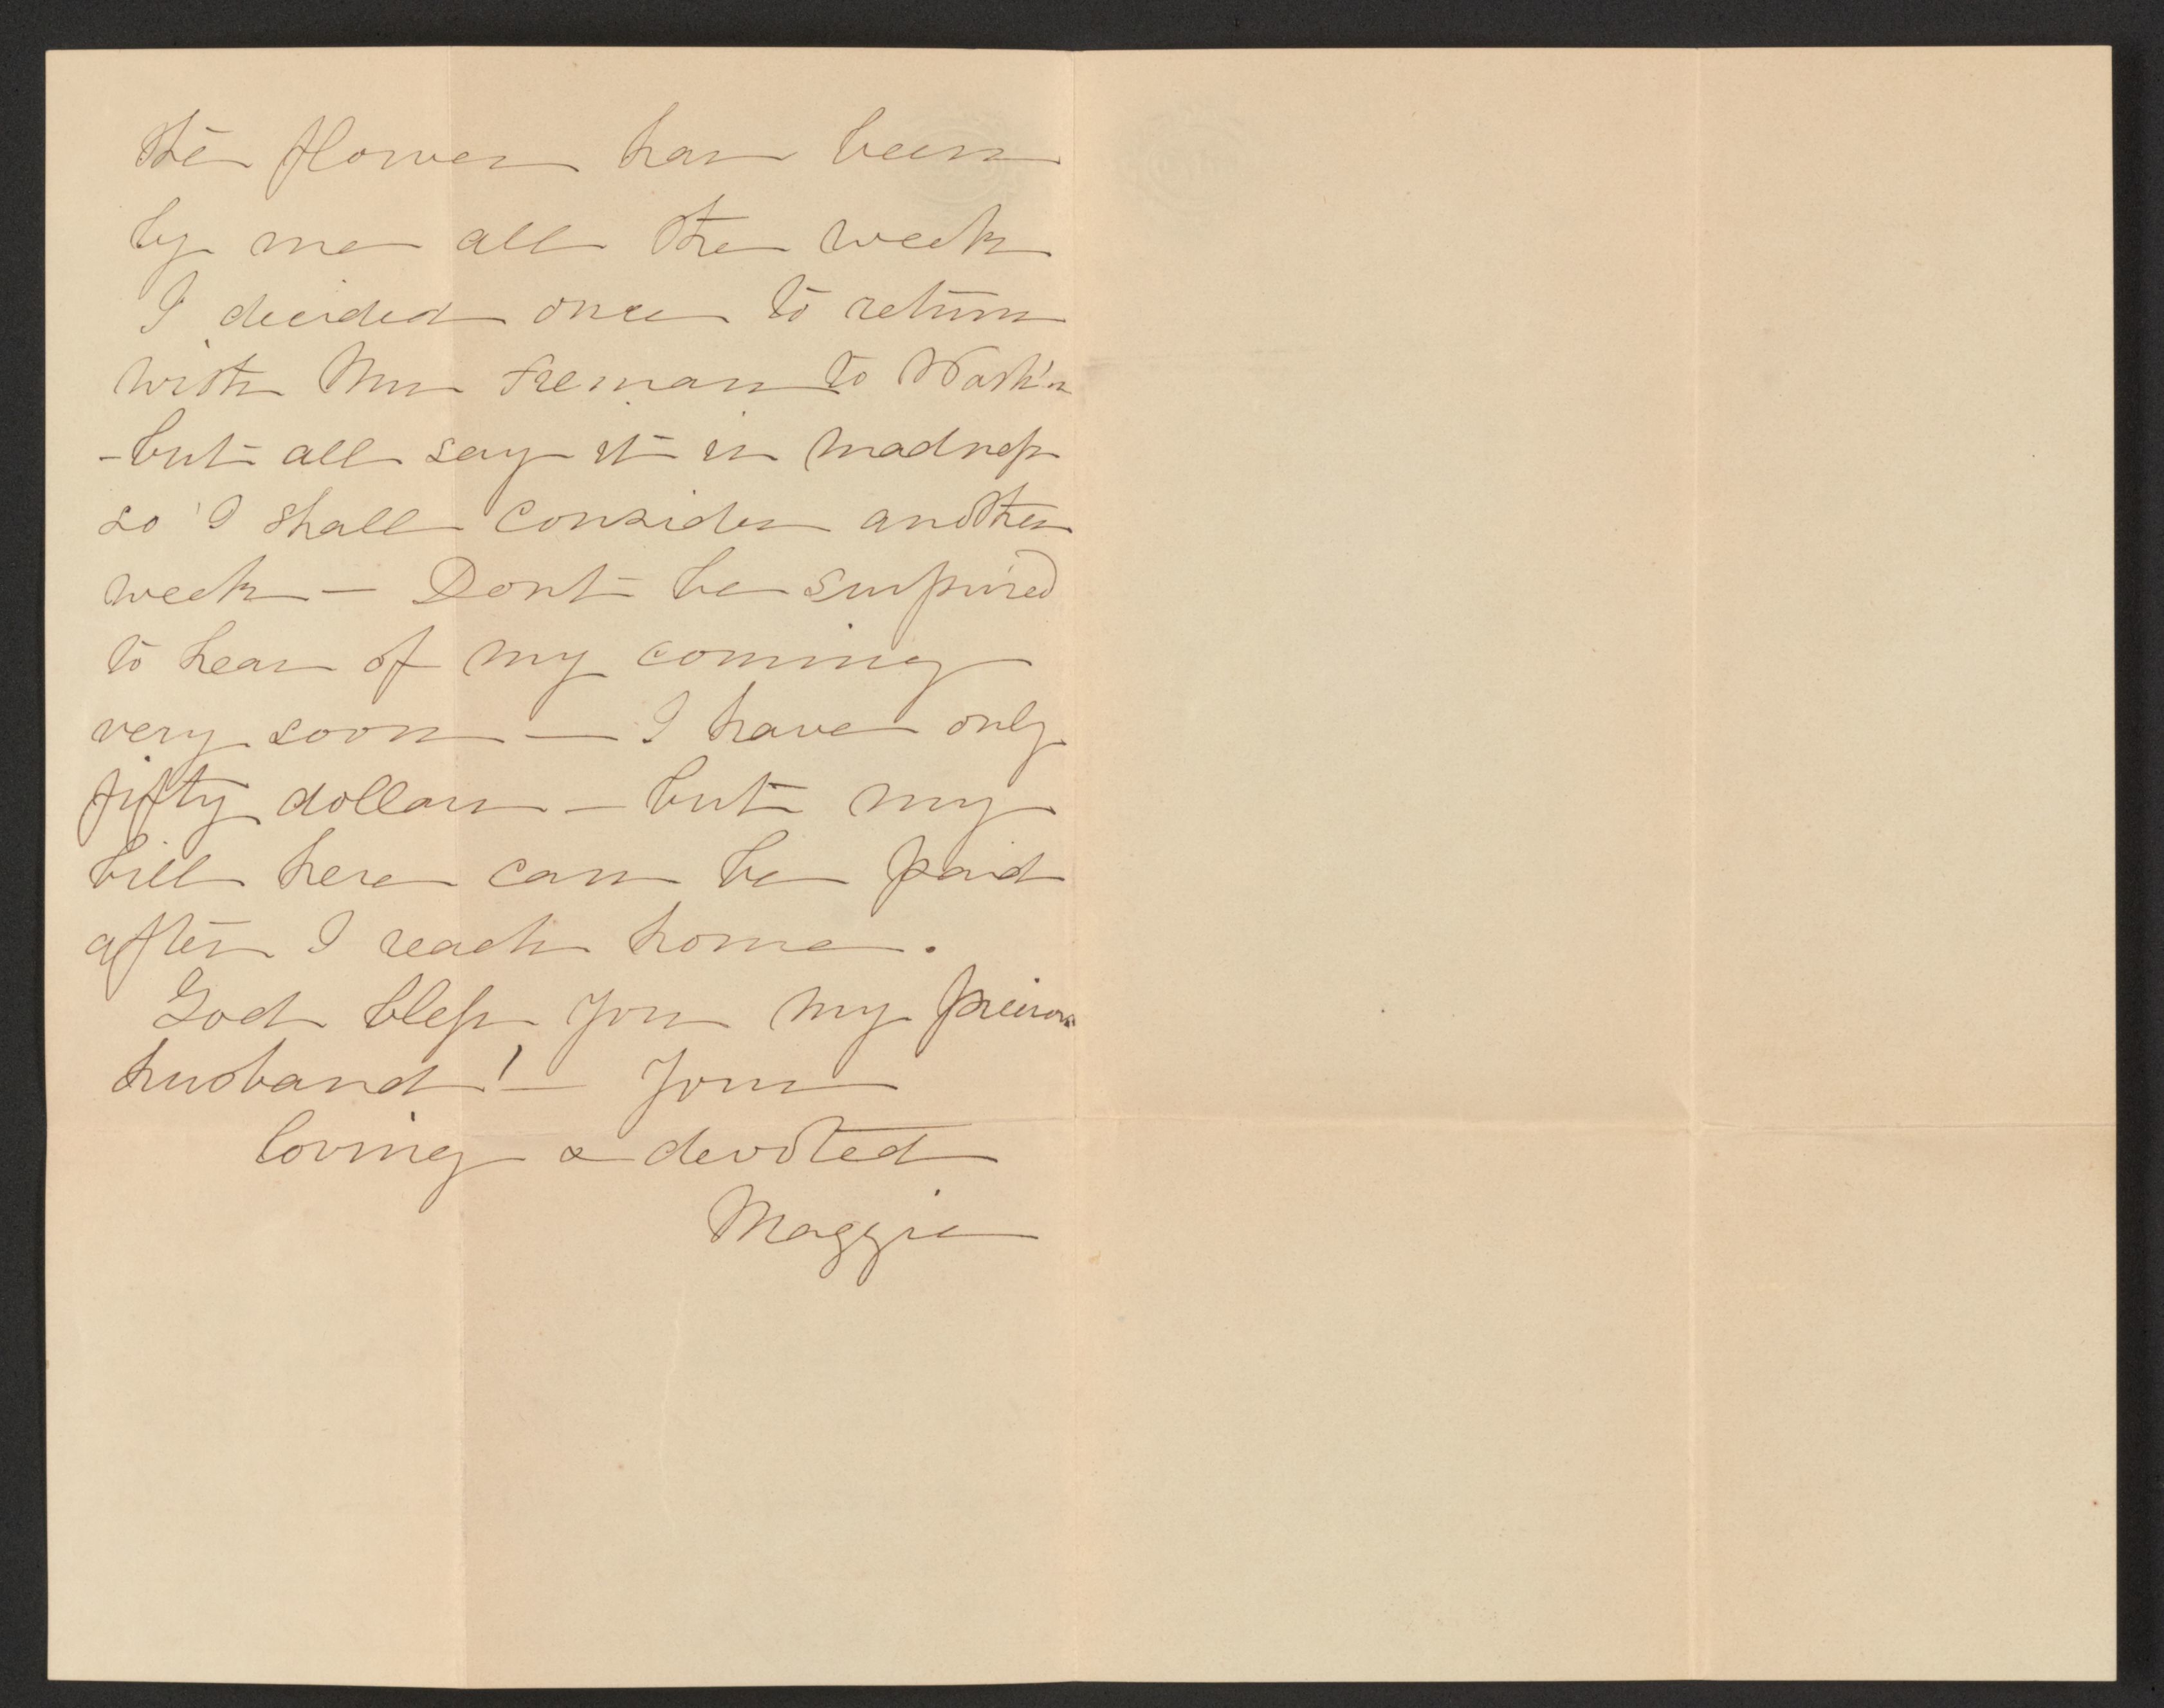 the flower has been
by me all the week
I decided once to return
with Mrs Freman to Wash'n
- but all say it is madness
so I shall consider another
week — Dont be surprised
to hear of my coming
very soon — I have only
fifty dollars — but my
bill here can be paid
after I reach home.
God bless you my precious
husband! — Your
loving & devoted
Maggie